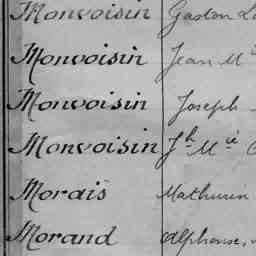 Monvoisin Gaston
Monvoisin Jean M
Monvoisin Joseph
Monvoisin Jh Mie
Morais Mathurin
Morand Alphonse,